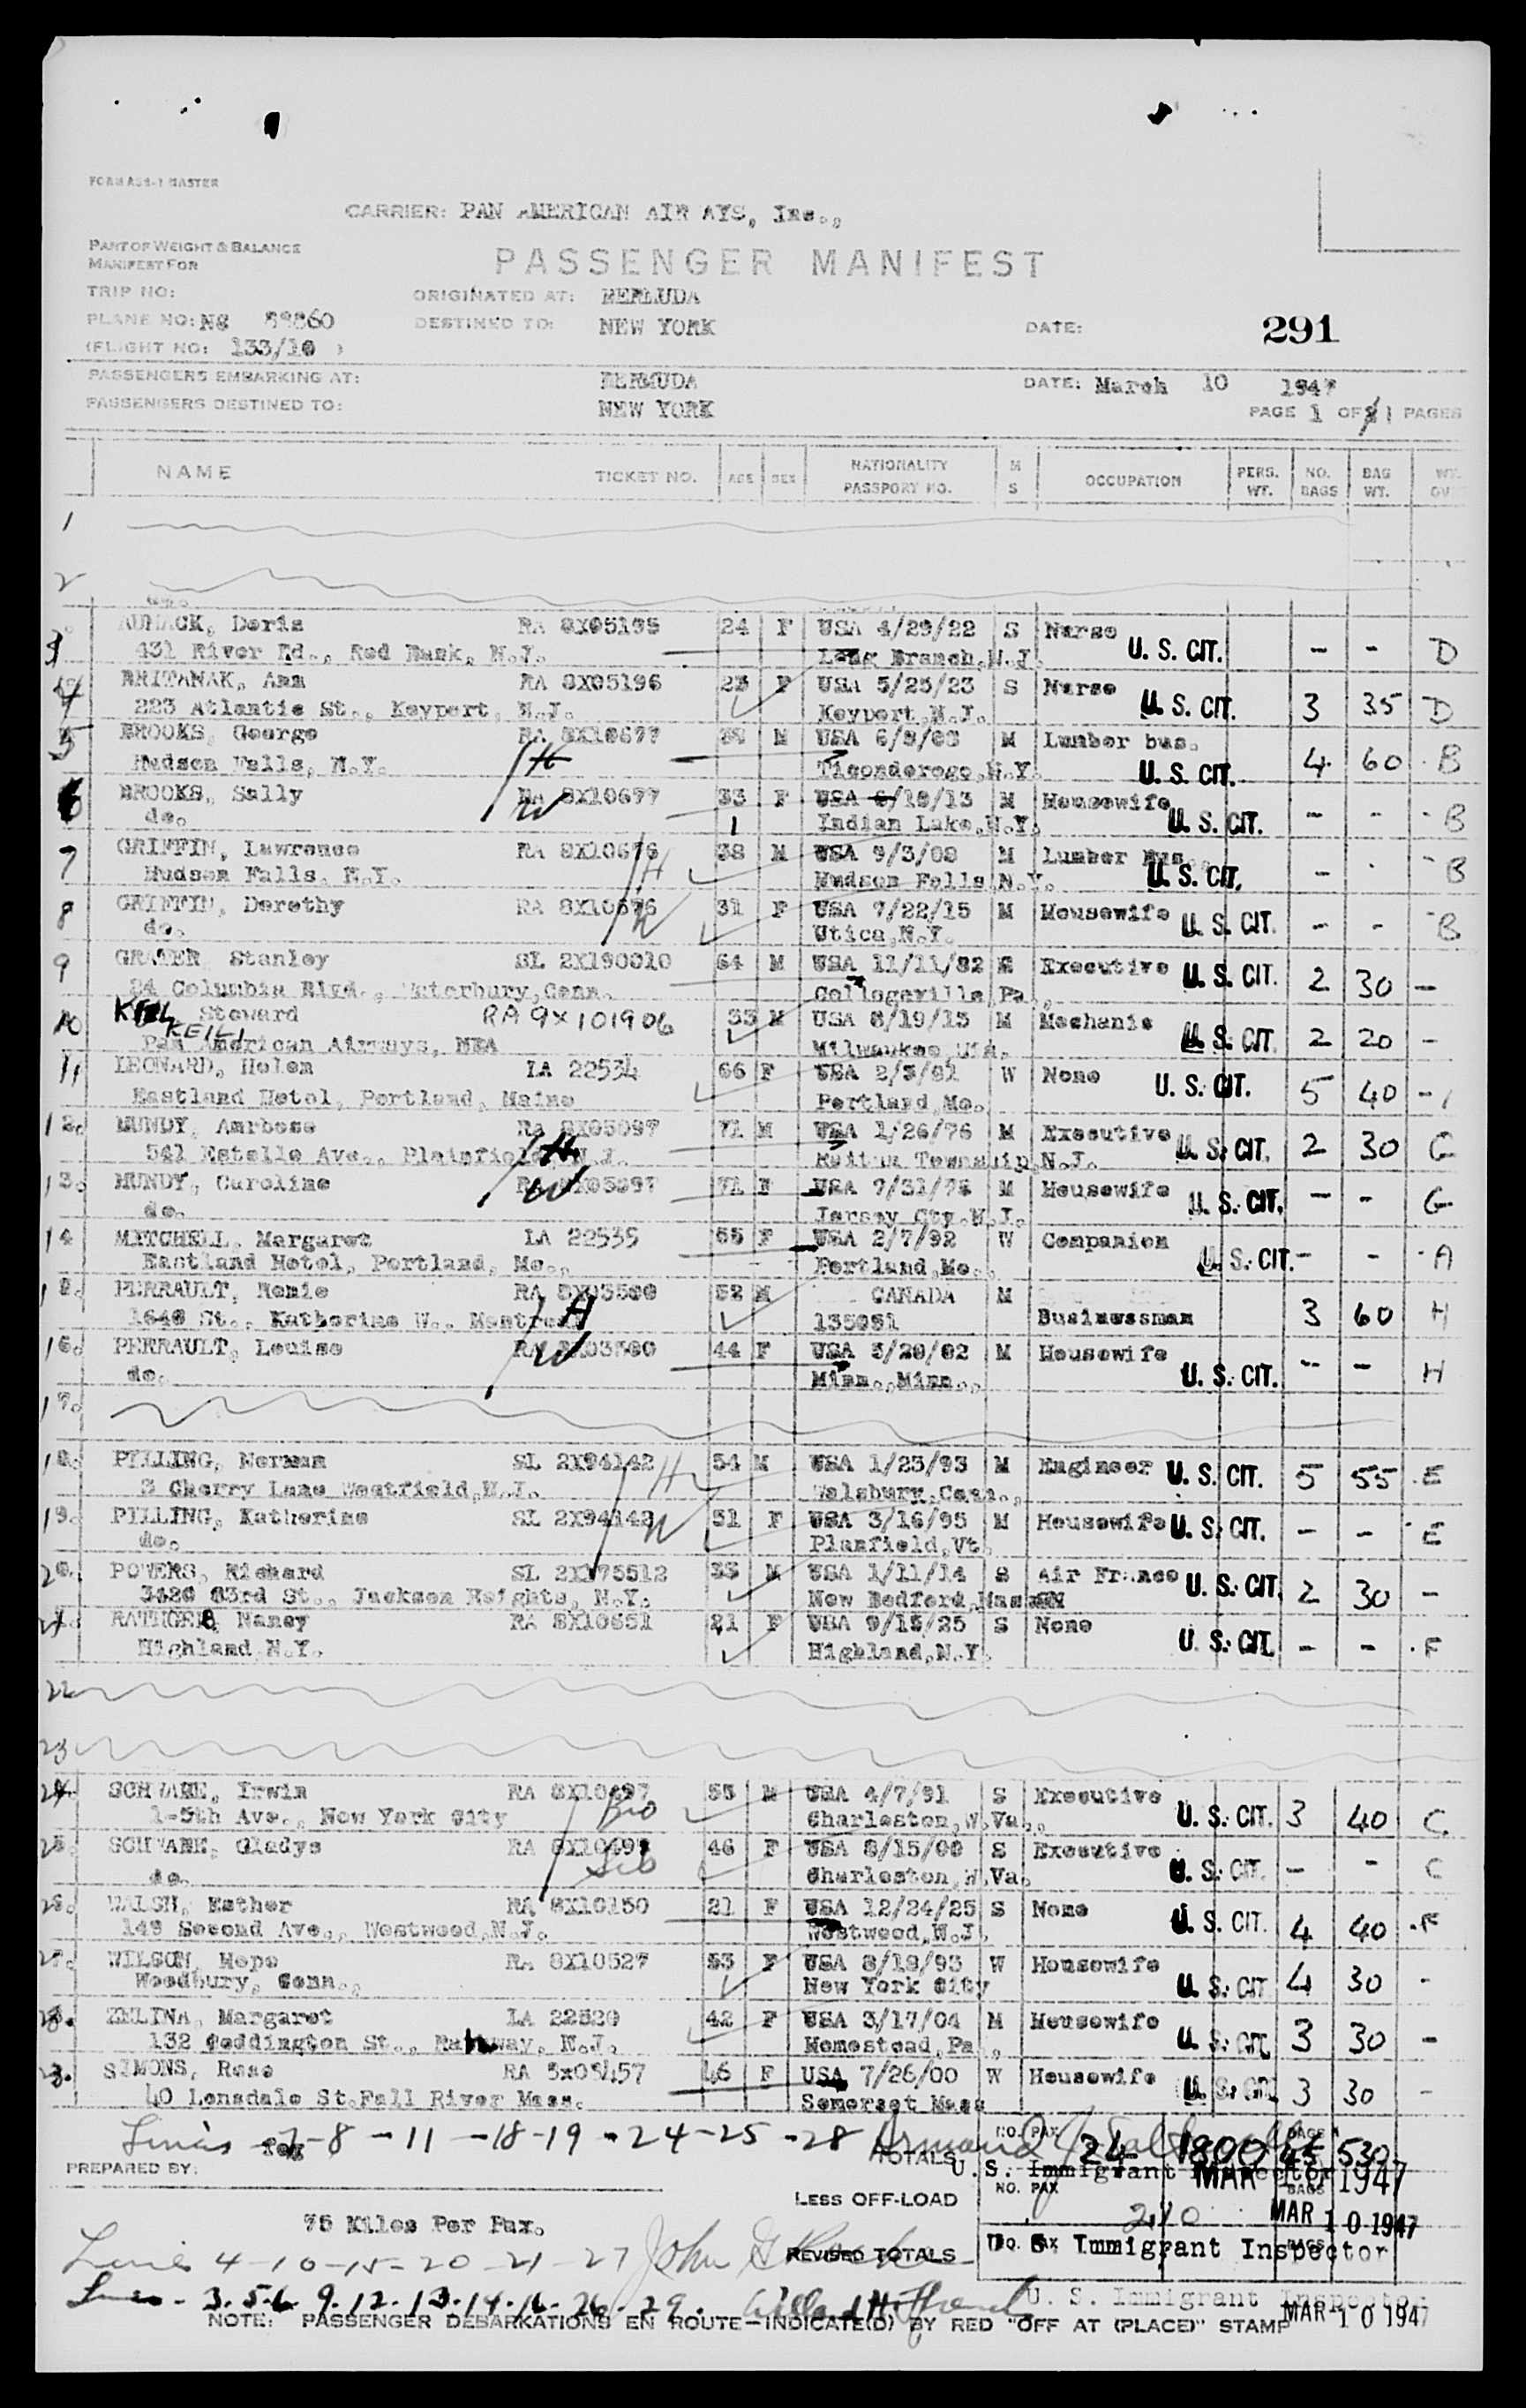 FORM AS8-1 MASTER
CARRIER: PAN AMERICAN AIRWAYS, Inc.,
PART OF WEIGHT & BALANCE
MANIFEST FOR
PASSENGER MANIFEST
TRIP NO: ORIGINATED AT: BERMUDA
PLANE NO: NC 88860 DESTINED TO: NEW YORK DATE: 291
(FLIGHT NO: 133/10 )
PASSENGERS EMBARKING AT: BERMUDA DATE: March 10 1947
PASSENGERS DESTINED TO: NEW YORK PAGE 1 OF 1 PAGES
NAME TICKET NO. AGE SEX NATIONALITY PASSPORT NO. M S OCCUPATION PERS. WT. NO. BAGS BAG WT. WT.
1
2
3 AUMACK, Doris RA 8X05195 24 F USA 4/29/22 S Nurse U. S. CIT. - - D
431 River Rd., Red Bank, N.J. Long Branch, N.J.
4 BRITANAK, Ann RA 8X05196 23 F USA 5/25/23 S Nurse U. S. CIT. 3 35 D
223 Atlantic St., Keyport, N.J. Keyport, N.J.
5 BROOKS, George RA 8X10677 M USA M Lumber bus. U. S. CIT. 4 60 B
Hudson Falls, N.Y. H Ticonderoga, N.Y.
6 BROOKS, Sally RA 8X10677 33 F USA M Housewife U. S. CIT. - - B
do. W Indian Lake, N.Y.
7 GRIFFIN, Lawrence RA 8X10676 38 M USA 9/3/08 M Lumber Bus. U. S. CIT. - B
Hudson Falls, N.Y. H Hudson Falls, N.Y.
8 GRIFFIN, Dorothy RA 8X10676 31 F USA 7/22/15 M Housewife U. S. CIT. - - B
do. W Utica, N.Y.
9 GRATER Stanley SL 2X190010 64 M USA 11/11/82 Executive U. S. CIT. 2 30 -
24 Columbia Blvd., Waterbury, Conn. Collegeville, Pa.,
10 Steward RA 9x101906 33 M USA 8/19/13 M Mechanic U. S. CIT. 2 20 -
KEILI
Pan American Airways, BDA Milwaukee, Wis.
11 LEONARD, Helen LA 22534 66 F USA 2/3/81 W None U. S. CIT. 5 40 -
Eastland Hotel, Portland, Maine Portland, Me.
12. MUNDY, Ambrose RA 8X05097 71 M USA 1/26/76 M Executive U. S. CIT. 2 30 G
541 Estelle Ave., Plainfield N.J. H Raritan Township, N.J.
13. MUNDY, Caroline RA 8X05097 71 F USA M Housewife U. S. CIT. - - G
do. W Jersey Cty, N.J.
14 MITCHELL, Margaret LA 22535 55 F USA 2/7/92 W Companion U. S. CIT. - - A
Eastland Hotel, Portland, Me., Portland, Me.
15. PERRAULT, RA 52 M CANADA M Businessman 3 60 H
St., Katherine W., Montreal H 135051
16. PERRAULT, Louise RA 44 F USA M Housewife U. S. CIT. - - H
do. W Minn., Minn.,
17.
18. PILLING, Norman SL 2X94142 54 M USA 1/23/93 M Engineer U. S. CIT. 5 55 E
3 Cherry Lane Westfield, N.J. H Conn.,
19. PILLING, Katherine SL 2X94142 51 F USA 3/16/95 M Housewife U. S. CIT. - - E
do. W Planfield, Vt.
20. POWERS, Richard SL 2X175512 33 M USA 1/11/14 S Air France U. S. CIT. 2 30 -
3420 83rd St., Jackson Heights, N.Y. New Bedford, Mass
21. Nancy RA 8X10651 21 F USA 9/15/25 S None U. S. CIT. - - F
Highland N.Y. Highland, N.Y.
22
23
24. SCHWABE, Irwin RA 8X10497 55 M USA 4/7/91 S Executive U. S. CIT. 3 40 C
1-5th Ave., New York City Bro Charleston, W.Va.,
25. SCHWABE, Gladys RA 8X10497 46 F USA 8/15/00 S Executive U. S. CIT. - - C
do. Sis Charleston, W.Va.
26. WALSH, Esther RA 8X10150 21 F USA 12/24/25 S None U. S. CIT. 4 40 F
149 Second Ave., Westwood, N.J. Westwood, N.J.
27. WILSON, Hope RA 8X10527 53 F USA 8/19/93 W Housewife U. S. CIT 4 30 -
Woodbury, Conn., New York City
28. ZELINA, Margaret LA 22520 42 F USA 3/17/04 M Housewife U. S. CIT. 3 30 -
132 Coddington St., Rahway, N.J. Homestead, Pa.,
SIMONS, Rose RA 5x05457 46 F USA 7/26/00 W Housewife U. S. CIT. 3 30 -
40 Lonsdale St. Fall River Mass. Somerset Mass
Lines 7-8-11-18-19-24-25-28 Armand J.
TOTALS NO. PAX 24 1800 45 530
PREPARED BY: U. S. Immigrant Inspector MAR 10 1947
LESS OFF-LOAD NO. PAX BAGS
75 Kilos Per Pax. MAR 10 1947
Lines 4-10-15-20-21-27 John G. REVISED TOTALS NO. PAX U. S. Immigrant Inspector
Lines - 3.5.6.9.12.13.14.16.26.29. Willard H. French U. S. Immigrant Inspector
NOTE: PASSENGER DEBARKATIONS EN ROUTE—INDICATE(D) BY RED "OFF AT (PLACE)" STAMP MAR 10 1947